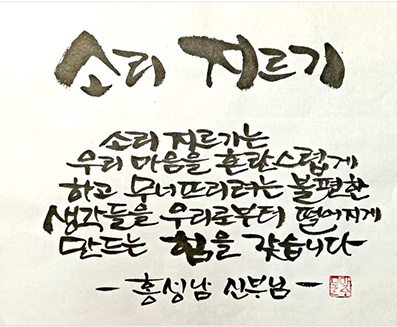 소리 지르기
소리 지르기는
우리 마음을 혼란스럽게
하고 무너뜨리려는 불편한
생각들을 우리로부터 떨어지게
만드는 힘을 갖습니다
- 홍성남 신부님 -